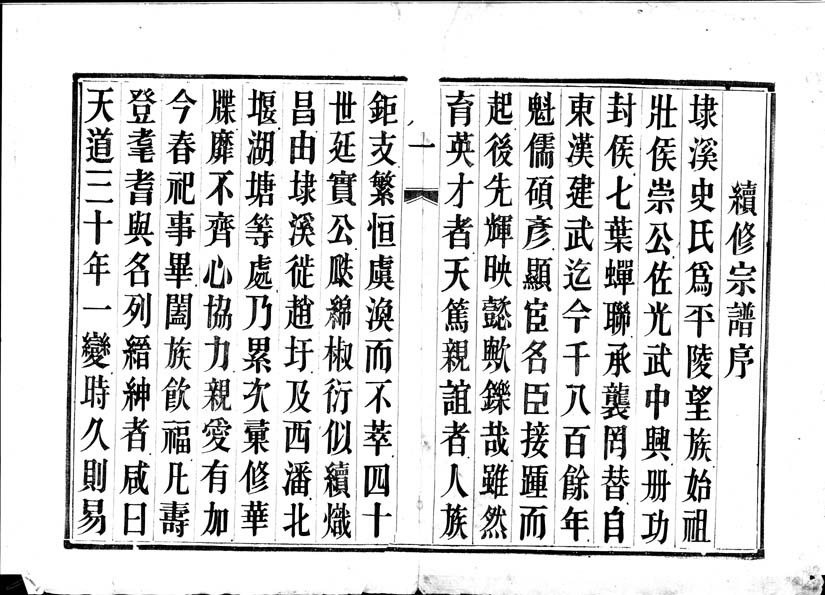 續修宗譜序
埭溪史氏爲平陵望族始祖
壯侯崇公佐光武中興册功
封侯七葉蟬聯承襲罔替自
東漢建武迄今千八百餘年
魁儒碩彥顯宦名臣接踵而
起後先輝映懿歟鑠哉雖然
育英才者天篤親誼者人族
一
鉅支繁恒虞渙而不萃四十
世廷實公瓞綿椒衍似續熾
昌由埭溪徙趙圩及西潘北
堰湖塘等處乃累次彚修華
牒靡不齊心協力親愛有加
今春祀事畢闔族飮福凡壽
登耄耆與名列縉紳者咸曰
天道三十年一變時久則易